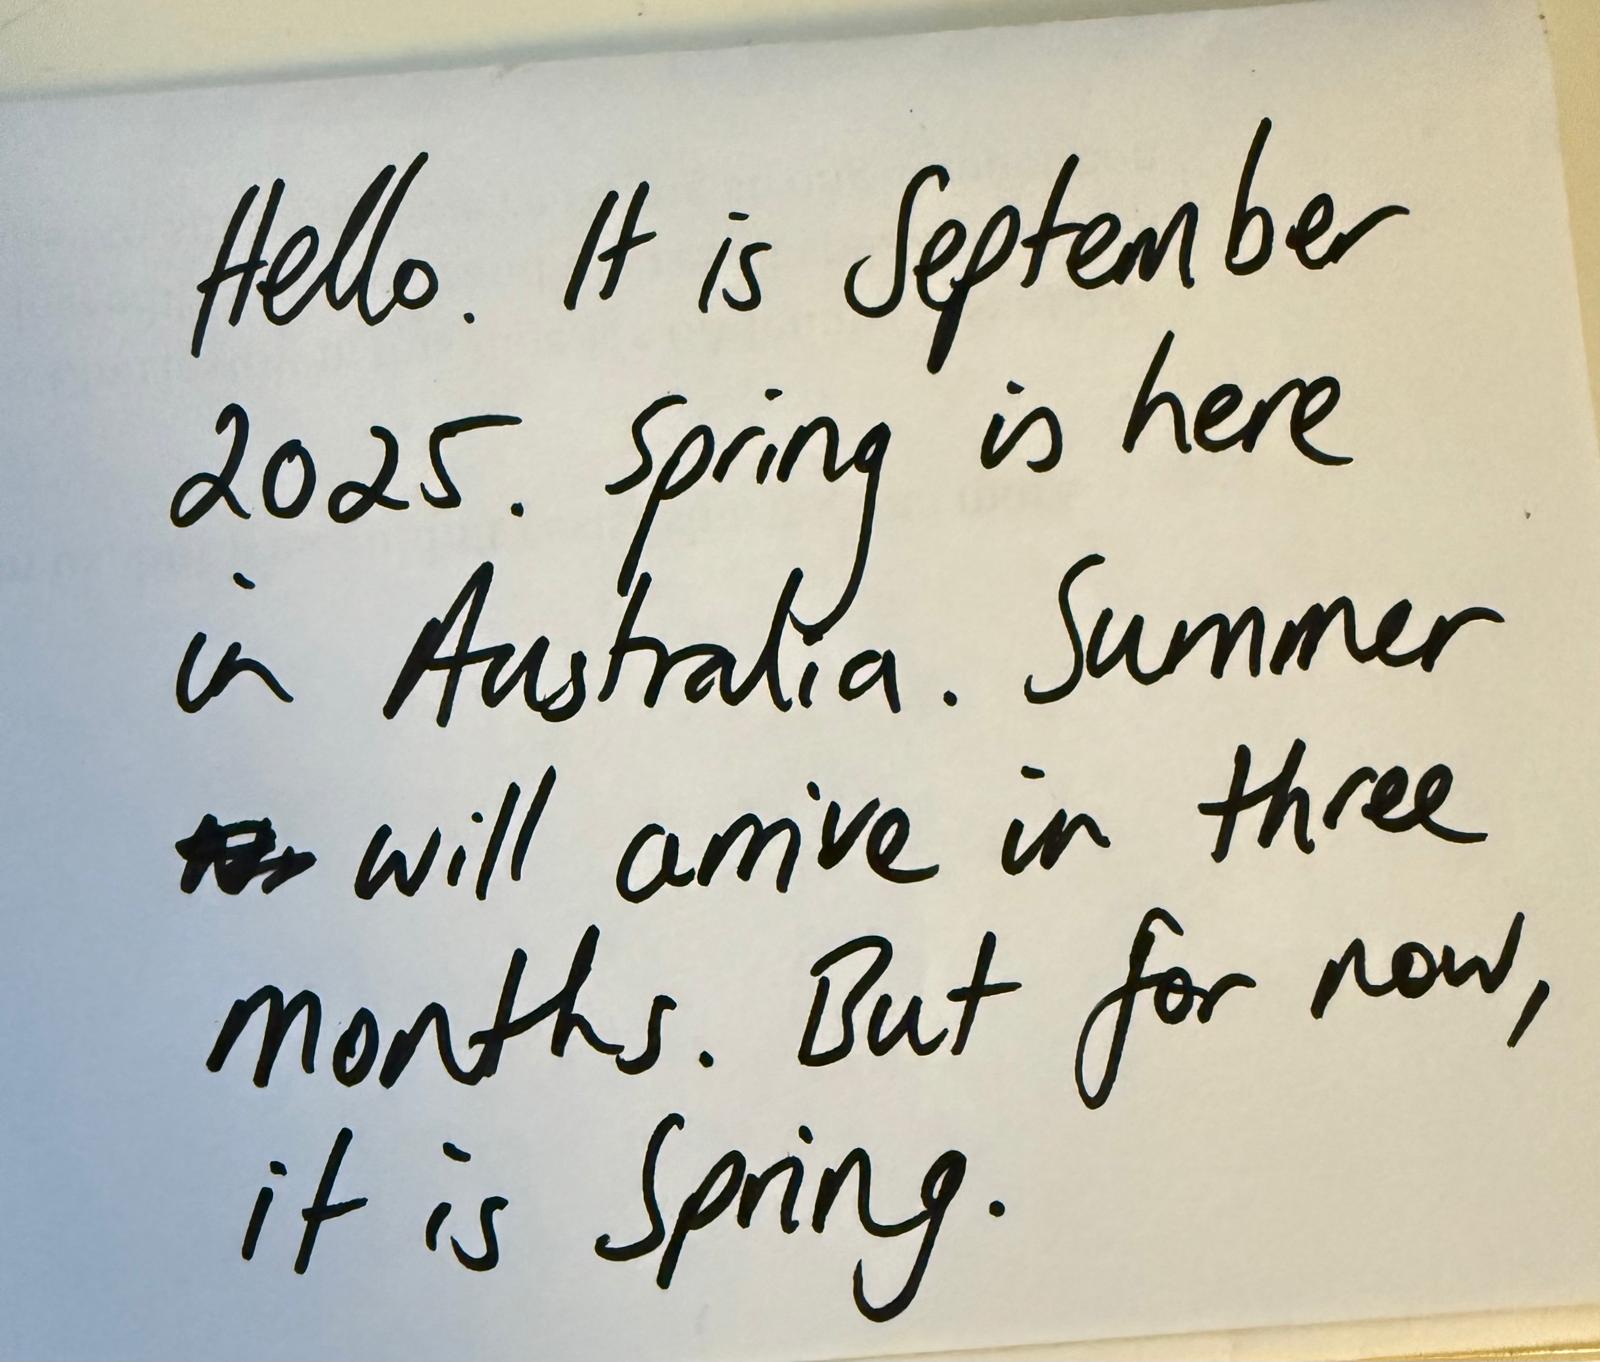 Hello. It is September
2025. Spring is here
in Australia. Summer
will arrive in three
months. But for now,
it is Spring.